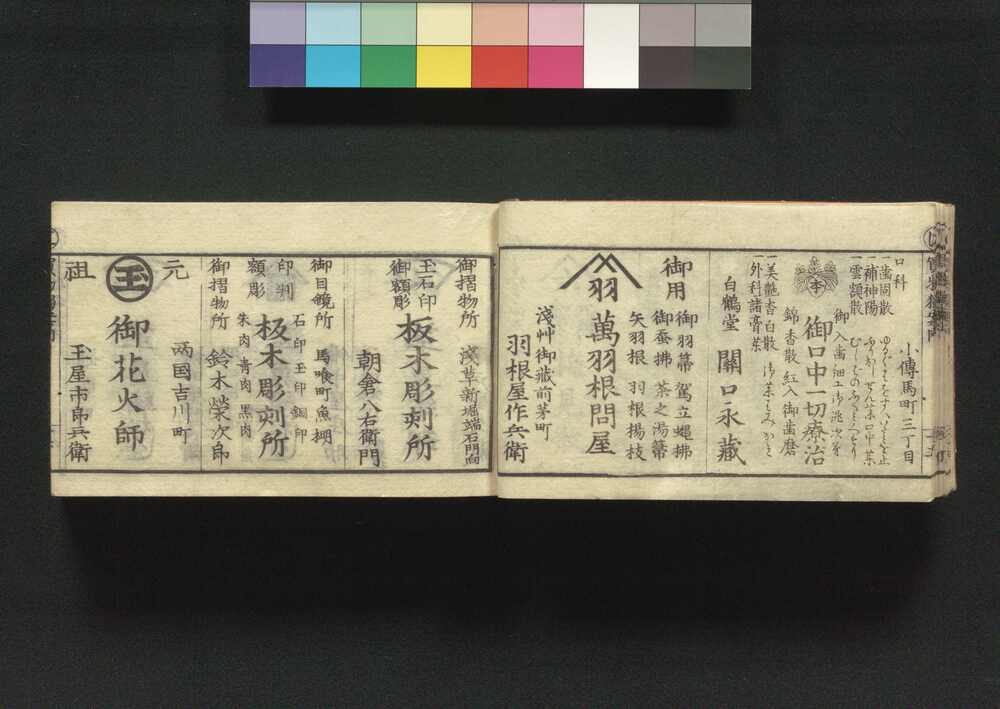 小傳馬町三丁目
口科
一歯固散
一補神陽
一雲額散
御入歯細工御誂次第
御口中一切療治
錦香散紅入御歯磨
一美艶香白散
一外科諸膏薬
白鶴堂 關口永藏
御用
御羽箒 駕立蝿拂
御蚕拂 茶之湯箒
矢羽根 羽根揚枝
羽 萬羽根問屋
淺艸御藏前茅町
羽根屋作兵衛
御摺物所 淺草新堀端石門向
玉石印
御額彫
板木彫刻所
朝倉八右衛門
御目鏡所 馬喰町魚棚
印判
額彫
石印 玉印 銅印
板木彫刻所
朱肉 青肉 黒肉
御摺物所 鈴木榮次郎
元 两國吉川町
玉 御花火師
祖 玉屋市郎兵衛